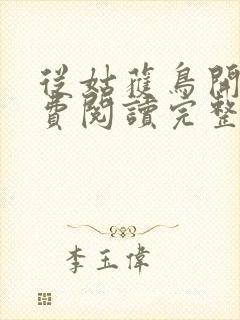 從姑蘇鳥開
費閱讀完整
李玉偉